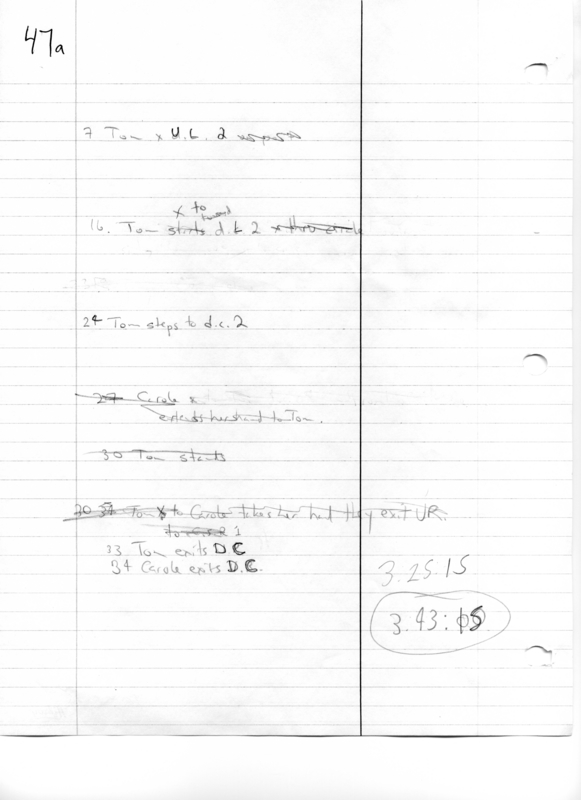 47a
7 Tom x U.L. 2
x to toward
16. Tom starts d.L 2 x thru circle
24 Tom steps to d.c. 2
27 Carole x
extends her hand to Tom.
30 Tom starts
30 37 Tom x to Carole takes her hand they exit UR.
1
33 Tom exits DC
34 Carole exits D.C.
3.25.15
3.43: